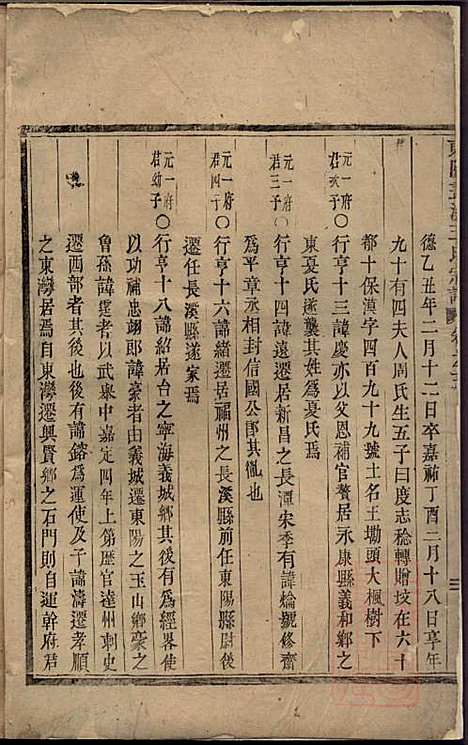 德乙丑年二月十二日卒嘉祐丁酉二月十八日享年
九十有四夫人周氏生五子曰度志稔轉贈墳在六十
都十保漠字四百九十九號土名王坳頭大楓樹下
元一府君次子〇行亨十三諱慶亦以父恩補官贅居永康縣義和鄉之
東夏氏遂襲其姓為夏氏焉
元一府君三子〇行亨十四諱遠遷居新昌之長潭宋季有諱爚號修齋
為平章丞相封信國公即其胤也
元一府君四子〇行亨十六諱緒遷居福州之長溪縣前任東陽縣尉後
遷任長溪縣遂家焉
元一府君幼子〇行亨十八諱紹居台之寧海義城鄉其後有為經畧使
以功補忠翊郎諱豪者由義城遷東陽之玉山鄉豪之
魯孫諱霆者以武舉中嘉定四年上第歷官達州刺史
遷酉部者其後也後有諱鎔為運使及子諱濤遷孝順
之東灣居焉自東灣遷興賢鄉之石門則自運幹府君